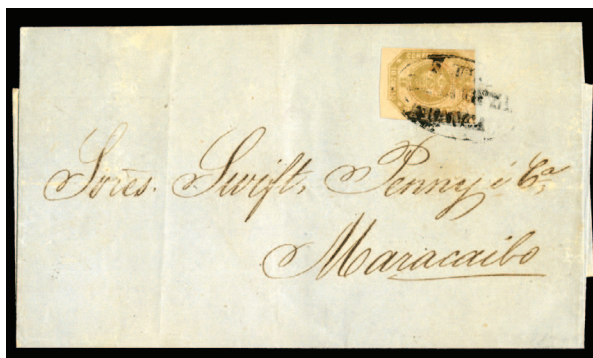 Sores. Swift, Penny é Cª,
Maracaibo